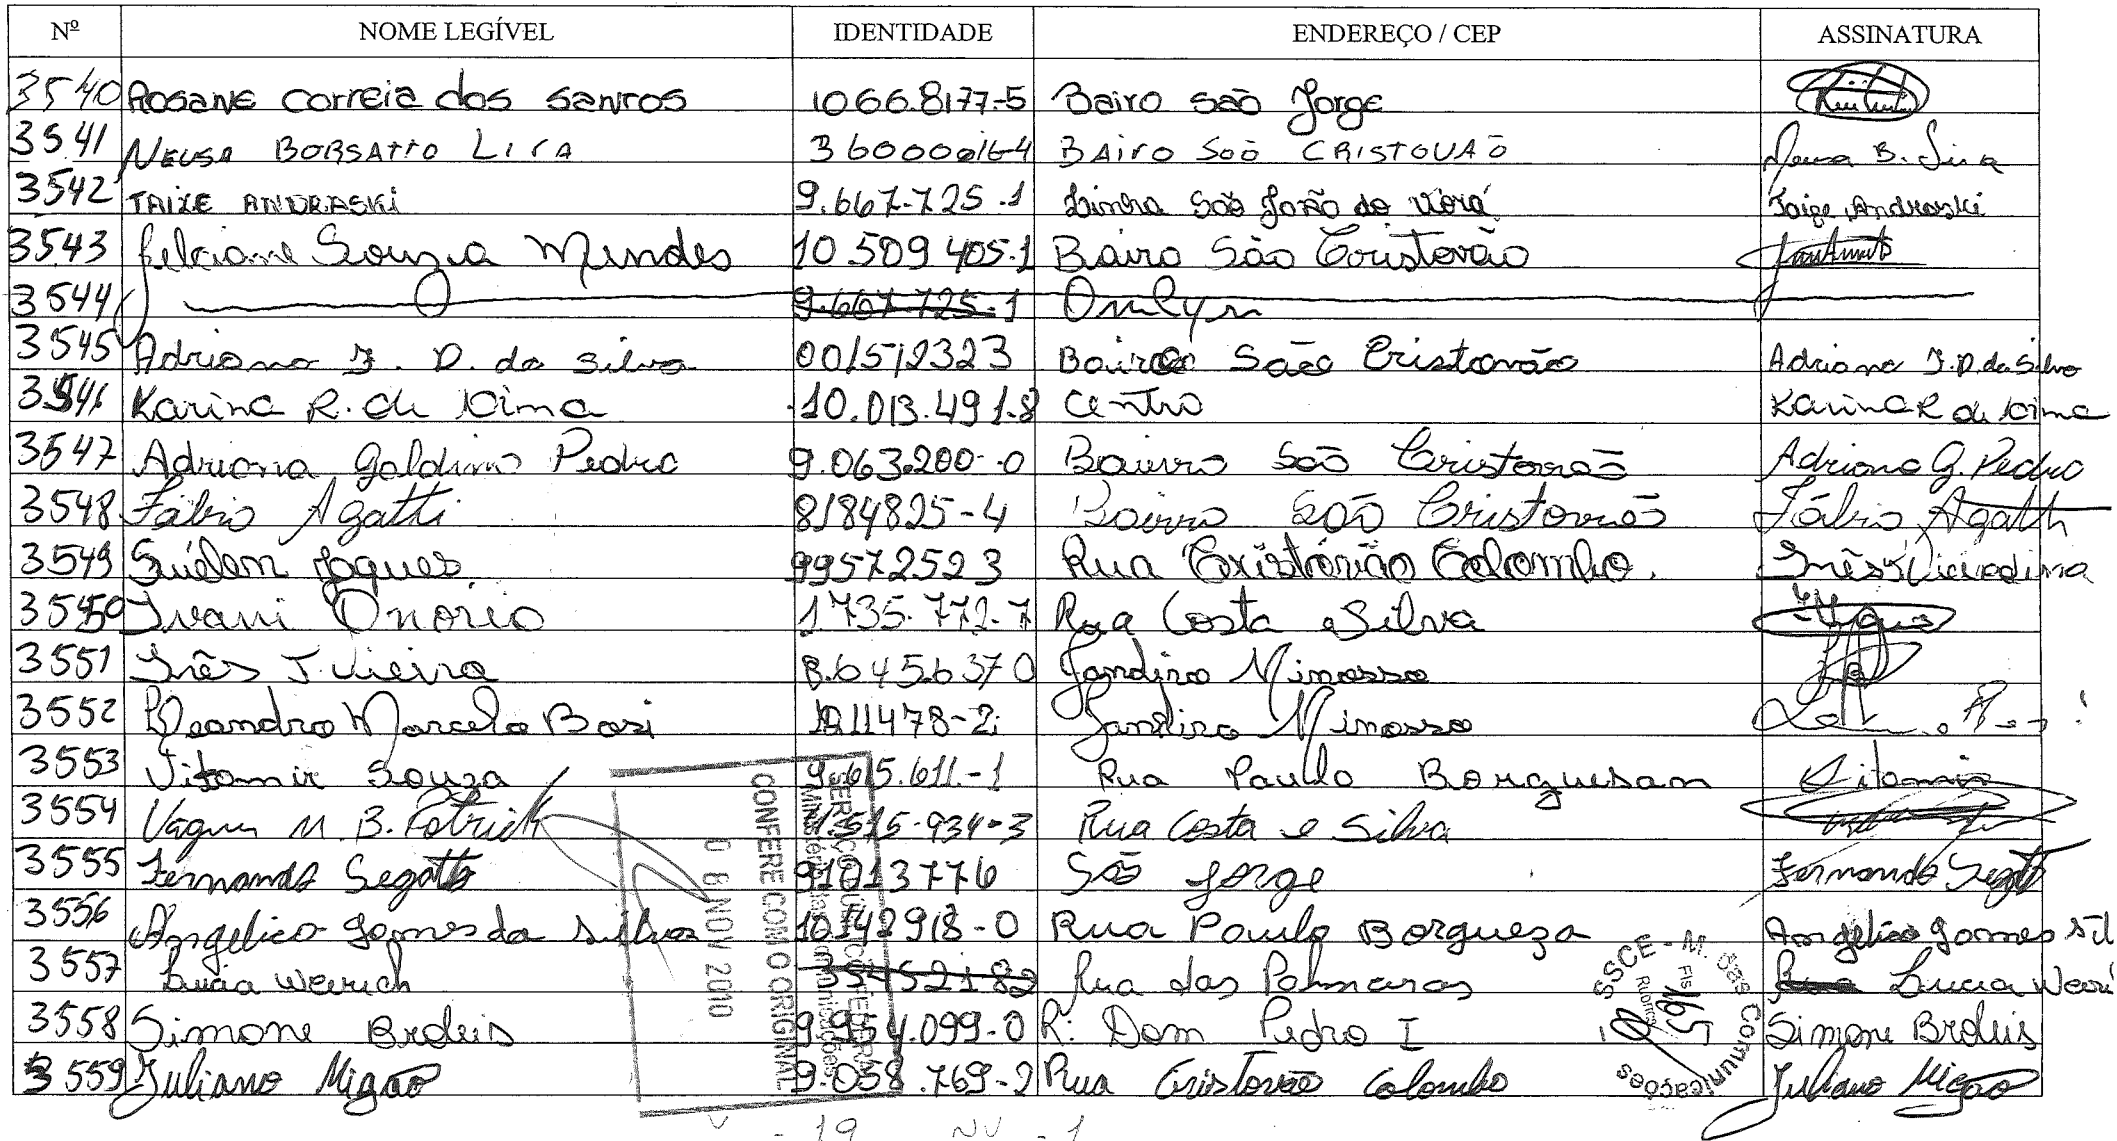 Nº NOME LEGÍVEL IDENTIDADE ENDEREÇO / CEP ASSINATURA
3540 Rosane Correia dos Santos 1066.8177-5 Bairo São Jorge
3541 Neusa Borsatto Lira 360000164 Bairo Soõ Cristovão Neusa B. Lira
3542 Taize Andraski 9.667.725-1 Linha São João do Taize Andraski
3543 Souza Mendes 10.509.405-1 Bairro São Cristovão
3544 9.667.725-1
3545 Adriana J. D. da Silva 001512323 São Cristovão Adriana J. D. da Silva
3546 Karina R. de Lima 10.013.491-8 Centro Karina R de Lima
3547 Adriana Galdino Pedro 9.063.200-0 Bairro Soõ Cristovão Adriana G. Pedro
3548 Fábio Agatti 8184825-4 Bairro São Cristovão Fábio Agatti
3549 Suélen Jaques 99572523 Rua Cristóvão Colombo. Inês Vieira
3550 Ivani Onorio 1735.772-7 Rua Costa e Silva
3551 Inês T. Vieira 8.645637 0 Jandira Minosso
3552 Leandro Marcelo Bosi 1211478-2 Jandira Minosso
3553 Vitamir Souza 9.615.611-1 Rua Paulo Borguesam Vitamir
3554 Vagner M. B. 934-3 Rua Costa e Silva
3555 Fernando Segatto 91013776 São Jorge Fernando Segatto
3556 Angelica Gomes da Silva 10142918-0 Rua Paulo Borgueza Angelica Gomes Sil
3557 Lucia Weirich 35452182 Rua das Palmeiras Lucia Weiri
3558 Simone Broleis 9.954.099-0 R: Dom Pedro I Simone Broleis
3559 Juliano Migao 9.058.769-2 Rua Cristovão Colombo Juliano Migao
SERVIÇO PÚBLICO FEDERAL
Ministério das Comunicações
CONFERE COM O ORIGINAL
0 8 NOV 2010
SSCE - M. das Comunicações
Fls
Rubrica